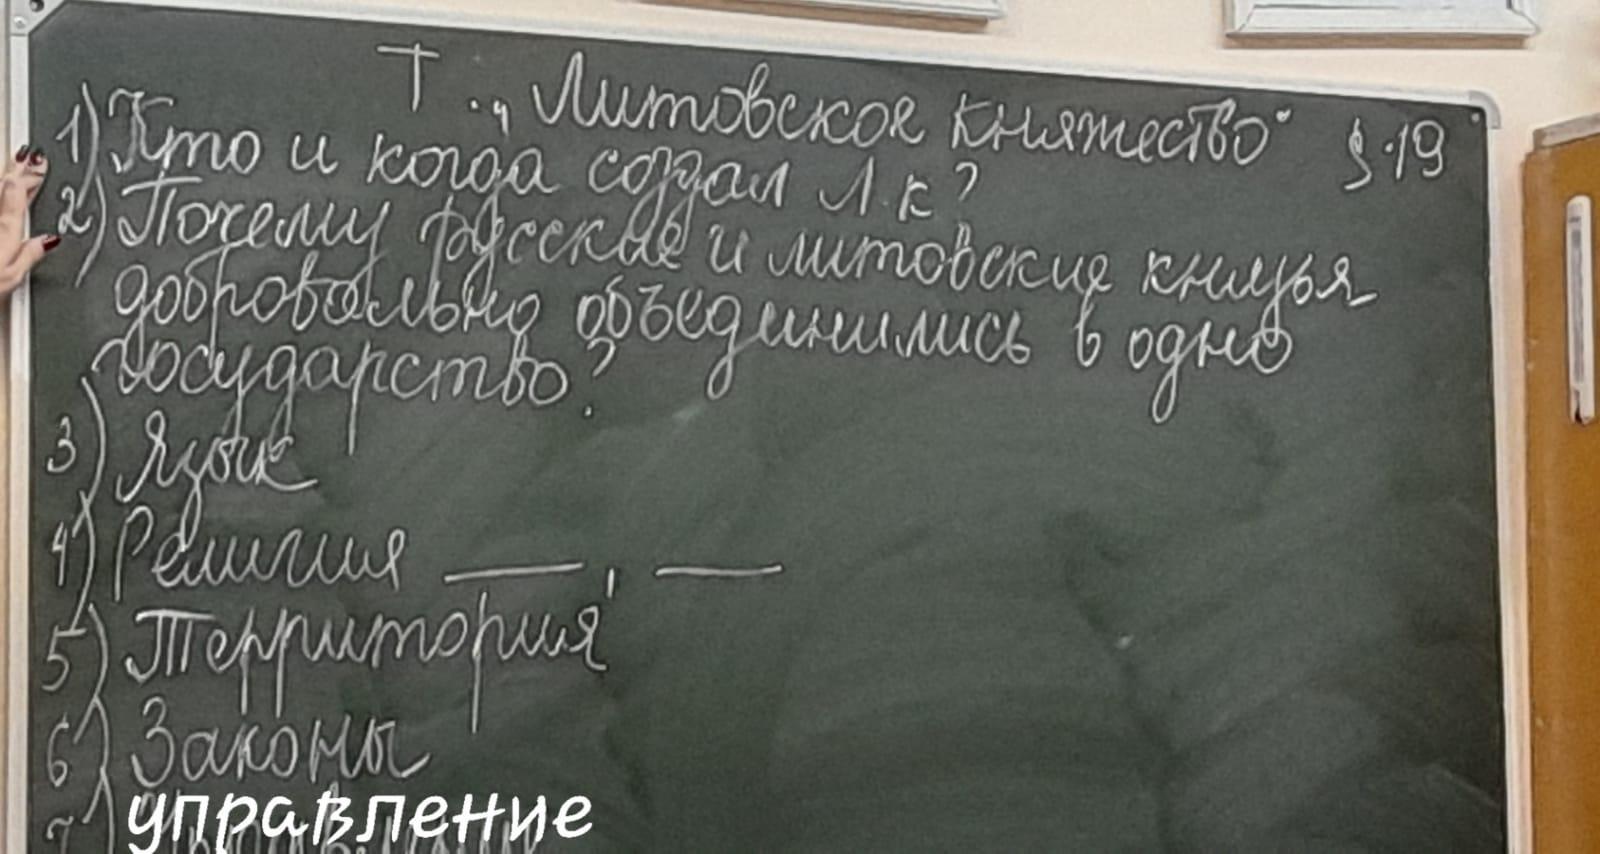 Т. „Литовское княжество" § 19
1) Кто и когда создал Л.к?
2) Почему русские и литовские князья
добровольно объединились в одно
государство?
3) Язык
4) Религия ____, ____
5) Территория
6) Законы
7) управление